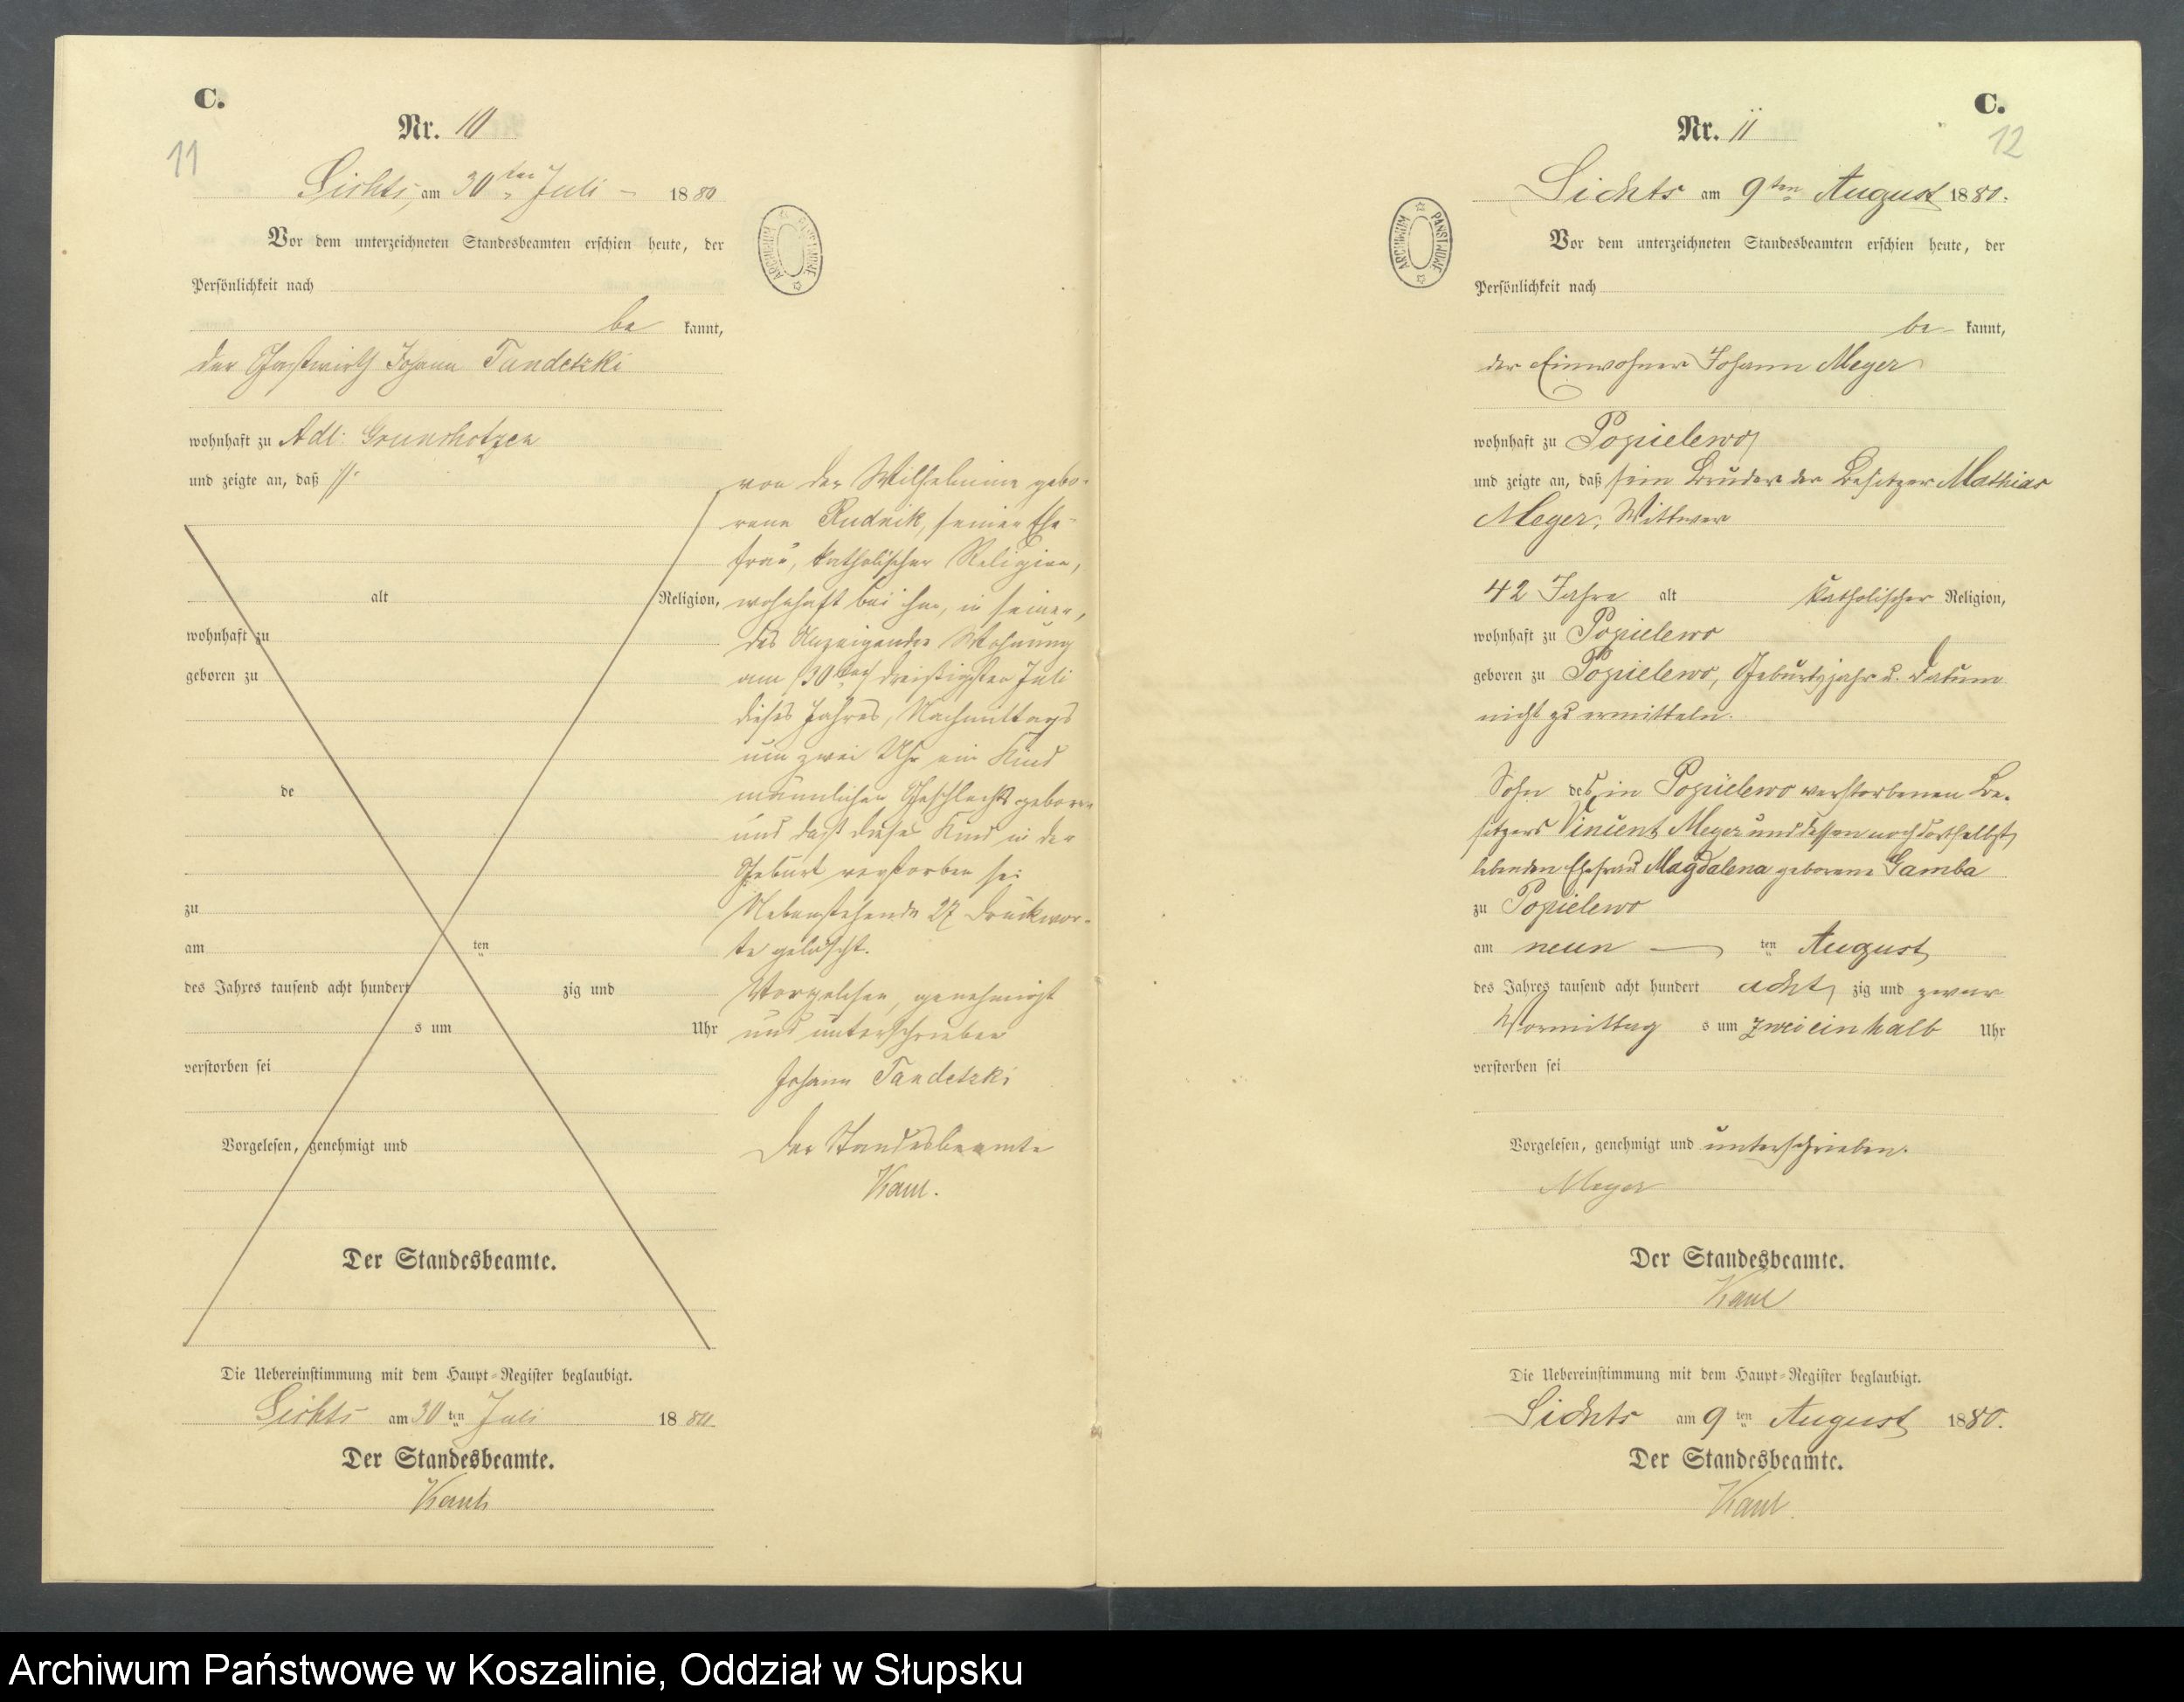 C.
11
Nr. 10
Lichts, am 30ten Juli 1880
Vor dem unterzeichneten Standesbeamten erschien heute, der
Persönlichkeit nach
be kannt,
der Gastwirth Johann Tandetzki
wohnhaft zu Adl. Grunshotzen
und zeigte an, daß
alt Religion,
wohnhaft zu
geboren zu
de
zu
am ten
des Jahres tausend acht hundert zig und
s um Uhr
verstorben sei
Vorgelesen, genehmigt und
Der Standesbeamte.
von der Wilhelmine gebo-
rene Rudnik, seiner Ehe-
frau, katholischer Religion,
wohnhaft bei ihm, in seiner,
des Anzeigenden Wohnung
am (30ten) dreißigsten Juli
dieses Jahres, Nachmittags
um zwei Uhr ein Kind
männlichen Geschlechts geboren
und daß dieses Kind in der
Geburt verstorben sei
Nebenstehende 27 Druckwor-
te gelöscht.
Vorgelesen, genehmigt
und unterschrieben
Johann Tandetzki
Der Standesbeamte
Kaul.
Die Uebereinstimmung mit dem Haupt-Register beglaubigt.
Lichts am 30ten Juli 1880.
Der Standesbeamte.
Kaul
C.
12
Nr. 11
Lichts am 9ten August 1880.
Vor dem unterzeichneten Standesbeamten erschien heute, der
Persönlichkeit nach
be kannt,
der Einwohner Johann Meyer
wohnhaft zu Popielewo
und zeigte an, daß sein Bruder der Besitzer Mathias
Meyer, Wittwer
42 Jahre alt katholischer Religion,
wohnhaft zu Popielewo
geboren zu Popielewo, Geburtsjahr u. Datum
nicht zu ermitteln.
Sohn des in Popielewo verstorbenen Be-
sitzers Vincent Meyer und dessen noch dortselbst
lebenden Ehefrau Magdalena geborene Gamba
zu Popielewo
am neun ten August
des Jahres tausend acht hundert acht zig und zwar
Vormittag s um zweieinhalb Uhr
verstorben sei
Vorgelesen, genehmigt und unterschrieben.
Meyer
Der Standesbeamte.
Kaul
Die Uebereinstimmung mit dem Haupt-Register beglaubigt.
Lichts am 9ten August 1880.
Der Standesbeamte.
Kaul.
ARCHIWUM PAŃSTWOWE
ARCHIWUM PAŃSTWOWE
Archiwum Państwowe w Koszalinie, Oddział w Słupsku